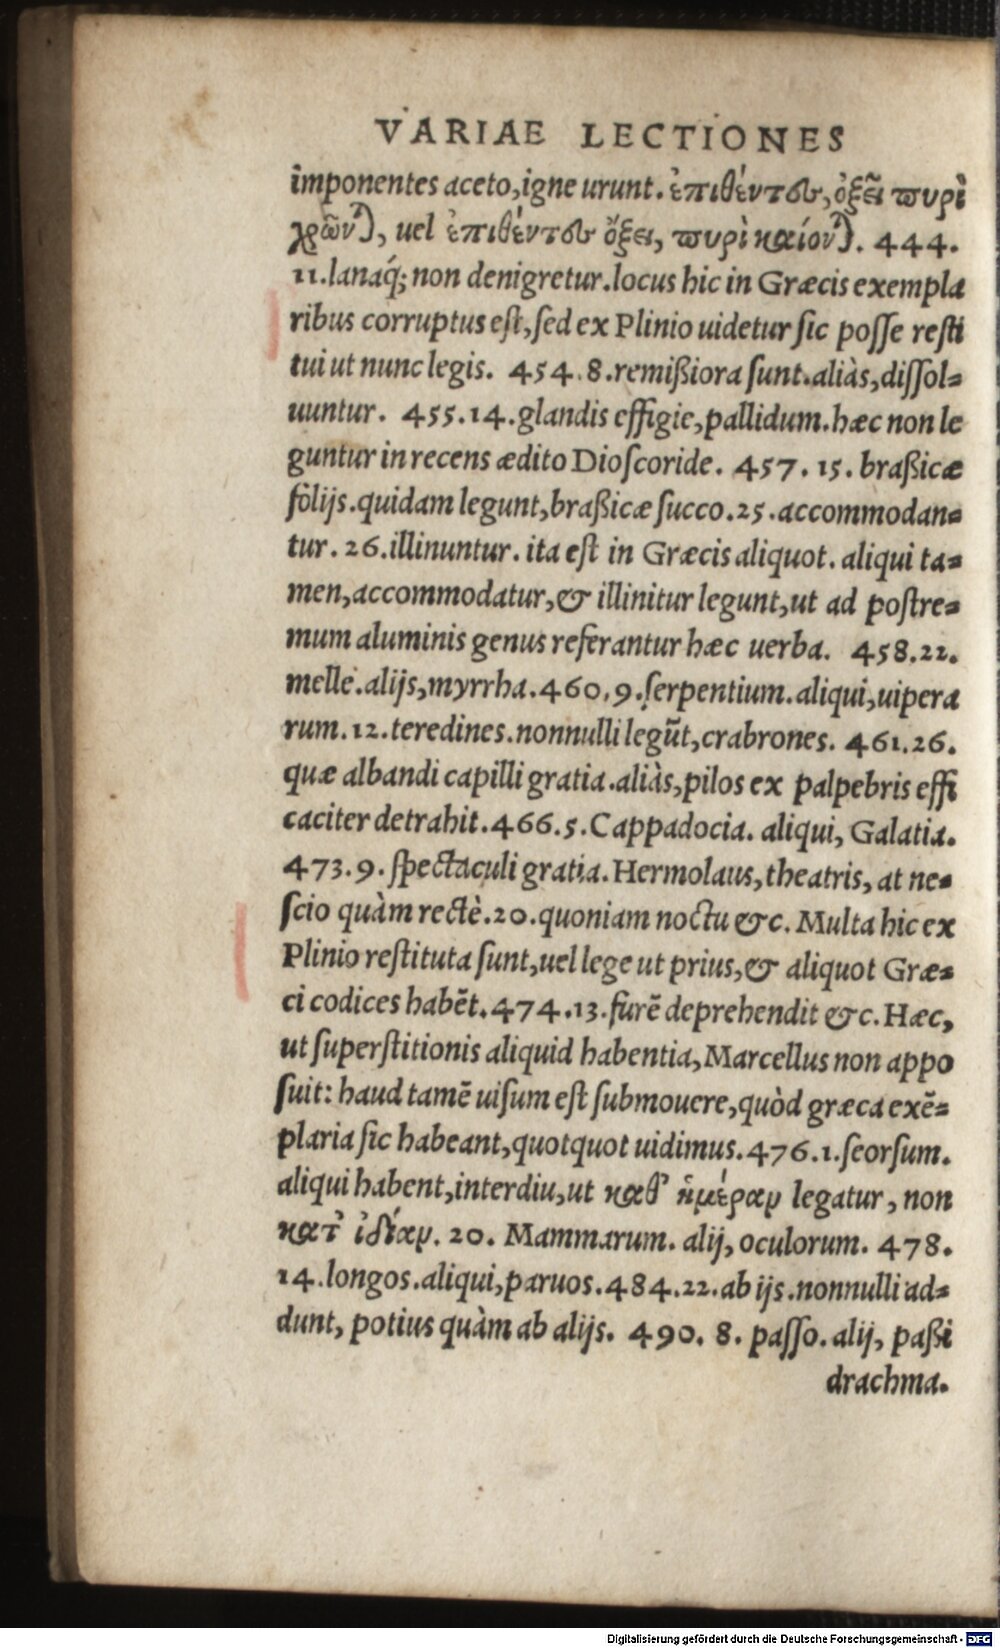 VARIAE LECTIONES
imponentes aceto, igne urunt. ἐπιθέντες, ὀξεῖ πυρὶ
χρῶνται, uel ἐπιθέντες ὄξει, πυρὶ καίονται. 444.
11. lanaq́; non denigretur. locus hic in Græcis exempla
ribus corruptus est, sed ex Plinio uidetur sic posse resti
tui ut nunc legis. 454. 8. remißiora sunt. aliàs, dissol=
uuntur. 455. 14. glandis effigie, pallidum. hæc non le
guntur in recens ædito Dioscoride. 457. 15. braßicæ
folijs. quidam legunt, braßicæ succo. 25. accommodan=
tur. 26. illinuntur. ita est in Græcis aliquot. aliqui ta=
men, accommodatur, & illinitur legunt, ut ad postre=
mum aluminis genus referantur hæc uerba. 458. 22.
melle. alijs, myrrha. 460. 9. serpentium. aliqui, uipera
rum. 12. teredines. nonnulli legũt, crabrones. 461. 26.
quæ albandi capilli gratia. aliàs, pilos ex palpebris effi
caciter detrahit. 466. 5. Cappadocia. aliqui, Galatia.
473. 9. spectaculi gratia. Hermolaus, theatris, at ne=
scio quàm rectè. 20. quoniam noctu &c. Multa hic ex
Plinio restituta sunt, uel lege ut prius, & aliquot Græ=
ci codices habẽt. 474. 13. furẽ deprehendit &c. Hæc,
ut superstitionis aliquid habentia, Marcellus non appo
suit: haud tamẽ uisum est submouere, quòd græca exẽ=
plaria sic habeant, quotquot uidimus. 476. 1. seorsum.
aliqui habent, interdiu, ut καθ' ἡμέραν legatur, non
κατ' ἰδίαν. 20. Mammarum. alij, oculorum. 478.
14. longos. aliqui, paruos. 484. 22. ab ijs. nonnulli ad=
dunt, potius quàm ab alijs. 490. 8. passo. alij, paßi
drachma.
Digitalisierung gefördert durch die Deutsche Forschungsgemeinschaft - DFG